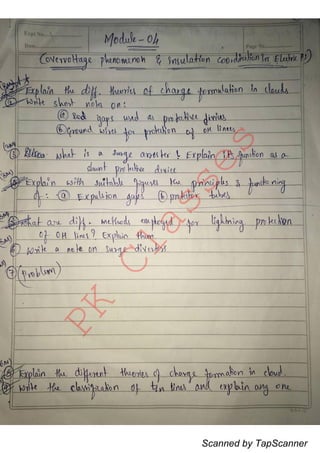 Expt No.
Date
Page No.
Module - 04
(overvoltage phenomenon & insulation coordination in Electric PS)
Explain the diff. theories of charge formulation in clouds
② Write short note on:
ⓐ Rod gaps used as protective devices
ⓑ Ground wires for protection of OH lines
③ what is a surge arrester? Explain its function as a
shunt protective device
Explain with suitable figures the principles & functioning
of: ⓐ Expulsion gaps ⓑ protector tubes
what are diff. methods employed for lightning protection
of OH lines? Explain them
write a note on surge diverters
⑦ (problem)
PK Classes
Explain the different theories of charge formation in cloud
write the classification of txn lines and explain any one
Scanned by TapScanner